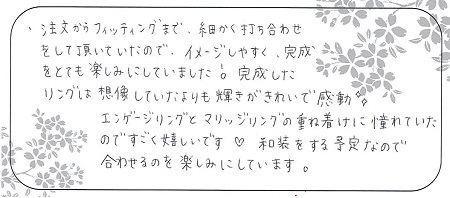 ・注文からフィッティングまで、細かく打ち合わせ
をして頂いていたので、イメージしやすく、完成
をとても楽しみにしていました!完成した
リングは想像していたよりも輝きがきれいで感動✧
エンゲージリングとマリッジリングの重ね着けに憧れていた
のですごく嬉しいです♡ 和装をする予定なので
合わせるのを楽しみにしています。